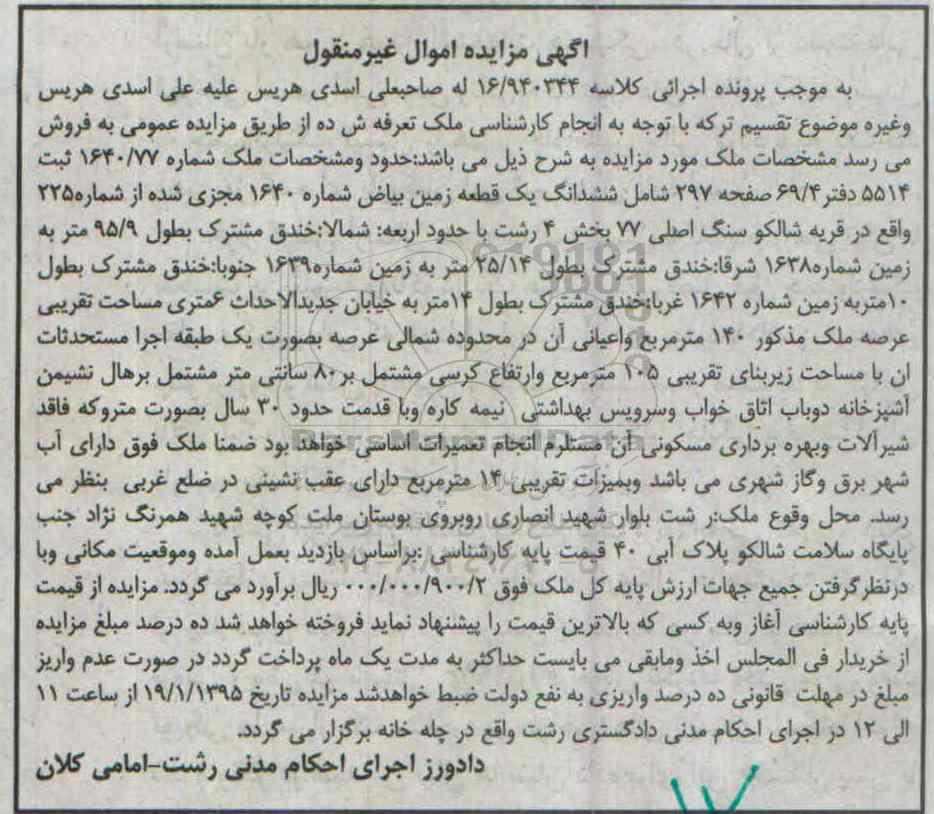 اگهی مزایده اموال غیرمنقول
به موجب پرونده اجرائی کلاسه ۱۶/۹۴۰۳۴۴ له صاحبعلی اسدی هریس علیه علی اسدی هریس
وغیره موضوع تقسیم ترکه با توجه به انجام کارشناسی ملک تعرفه ش ده از طریق مزایده عمومی به فروش
می رسد مشخصات ملک مورد مزایده به شرح ذیل می باشد:حدود ومشخصات ملک شماره ۱۶۴۰/۷۷ ثبت
۵۵۱۴ دفتر۶۹/۴ صفحه ۲۹۷ شامل ششدانگ یک قطعه زمین بیاض شماره ۱۶۴۰ مجزی شده از شماره۲۲۵
واقع در قریه شالکو سنگ اصلی ۷۷ بخش ۴ رشت با حدود اربعه: شمالا:خندق مشترک بطول ۹۵/۹ متر به
زمین شماره۱۶۳۸ شرقا:خندق مشترک بطول ۲۵/۱۴ متر به زمین شماره۱۶۳۹ جنوبا:خندق مشترک بطول
۱۰متربه زمین شماره ۱۶۴۲ غربا:خندق مشترک بطول ۱۴متر به خیابان جدیدالاحداث ۶متری مساحت تقریبی
عرصه ملک مذکور ۱۴۰ مترمربع واعیانی آن در محدوده شمالی عرصه بصورت یک طبقه اجرا مستحدثات
ان با مساحت زیربنای تقریبی ۱۰۵ مترمربع وارتفاع کرسی مشتمل بر۸۰ سانتی متر مشتمل برهال نشیمن
آشپزخانه دوباب اتاق خواب وسرویس بهداشتی نیمه کاره وبا قدمت حدود ۳۰ سال بصورت متروکه فاقد
شیرآلات وبهره برداری مسکونی آن مستلزم انجام تعمیرات اساسی خواهد بود ضمنا ملک فوق دارای آب
شهر برق وگاز شهری می باشد وبمیزات تقریبی ۱۴ مترمربع دارای عقب نشینی در ضلع غربی بنظر می
رسد. محل وقوع ملک:ر شت بلوار شهید انصاری روبروی بوستان ملت کوچه شهید همرنگ نژاد جنب
پایگاه سلامت شالکو پلاک آبی ۴۰ قیمت پایه کارشناسی :براساس بازدید بعمل آمده وموقعیت مکانی وبا
درنظرگرفتن جمیع جهات ارزش پایه کل ملک فوق ۰۰۰/۰۰۰/۹۰۰/۲ ریال برآورد می گردد. مزایده از قیمت
پایه کارشناسی آغاز وبه کسی که بالاترین قیمت را پیشنهاد نماید فروخته خواهد شد ده درصد مبلغ مزایده
از خریدار فی المجلس اخذ ومابقی می بایست حداکثر به مدت یک ماه پرداخت گردد در صورت عدم واریز
مبلغ در مهلت قانونی ده درصد واریزی به نفع دولت ضبط خواهدشد مزایده تاریخ ۱۹/۱/۱۳۹۵ از ساعت ۱۱
الی ۱۲ در اجرای احکام مدنی دادگستری رشت واقع در چله خانه برگزار می گردد.
دادورز اجرای احکام مدنی رشت-امامی کلان
ParsNamadData